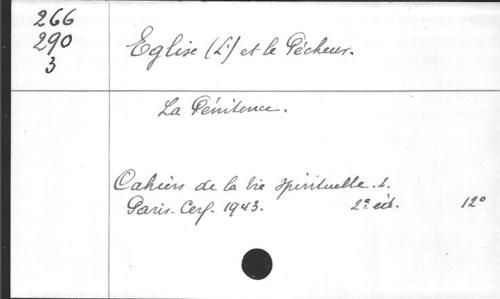 266
290
3
Eglise (L') et le Pécheur.
La Pénitence.
Cahiers de la vie spirituelle.
Paris. Cerf. 1943. 2e éd. 12°